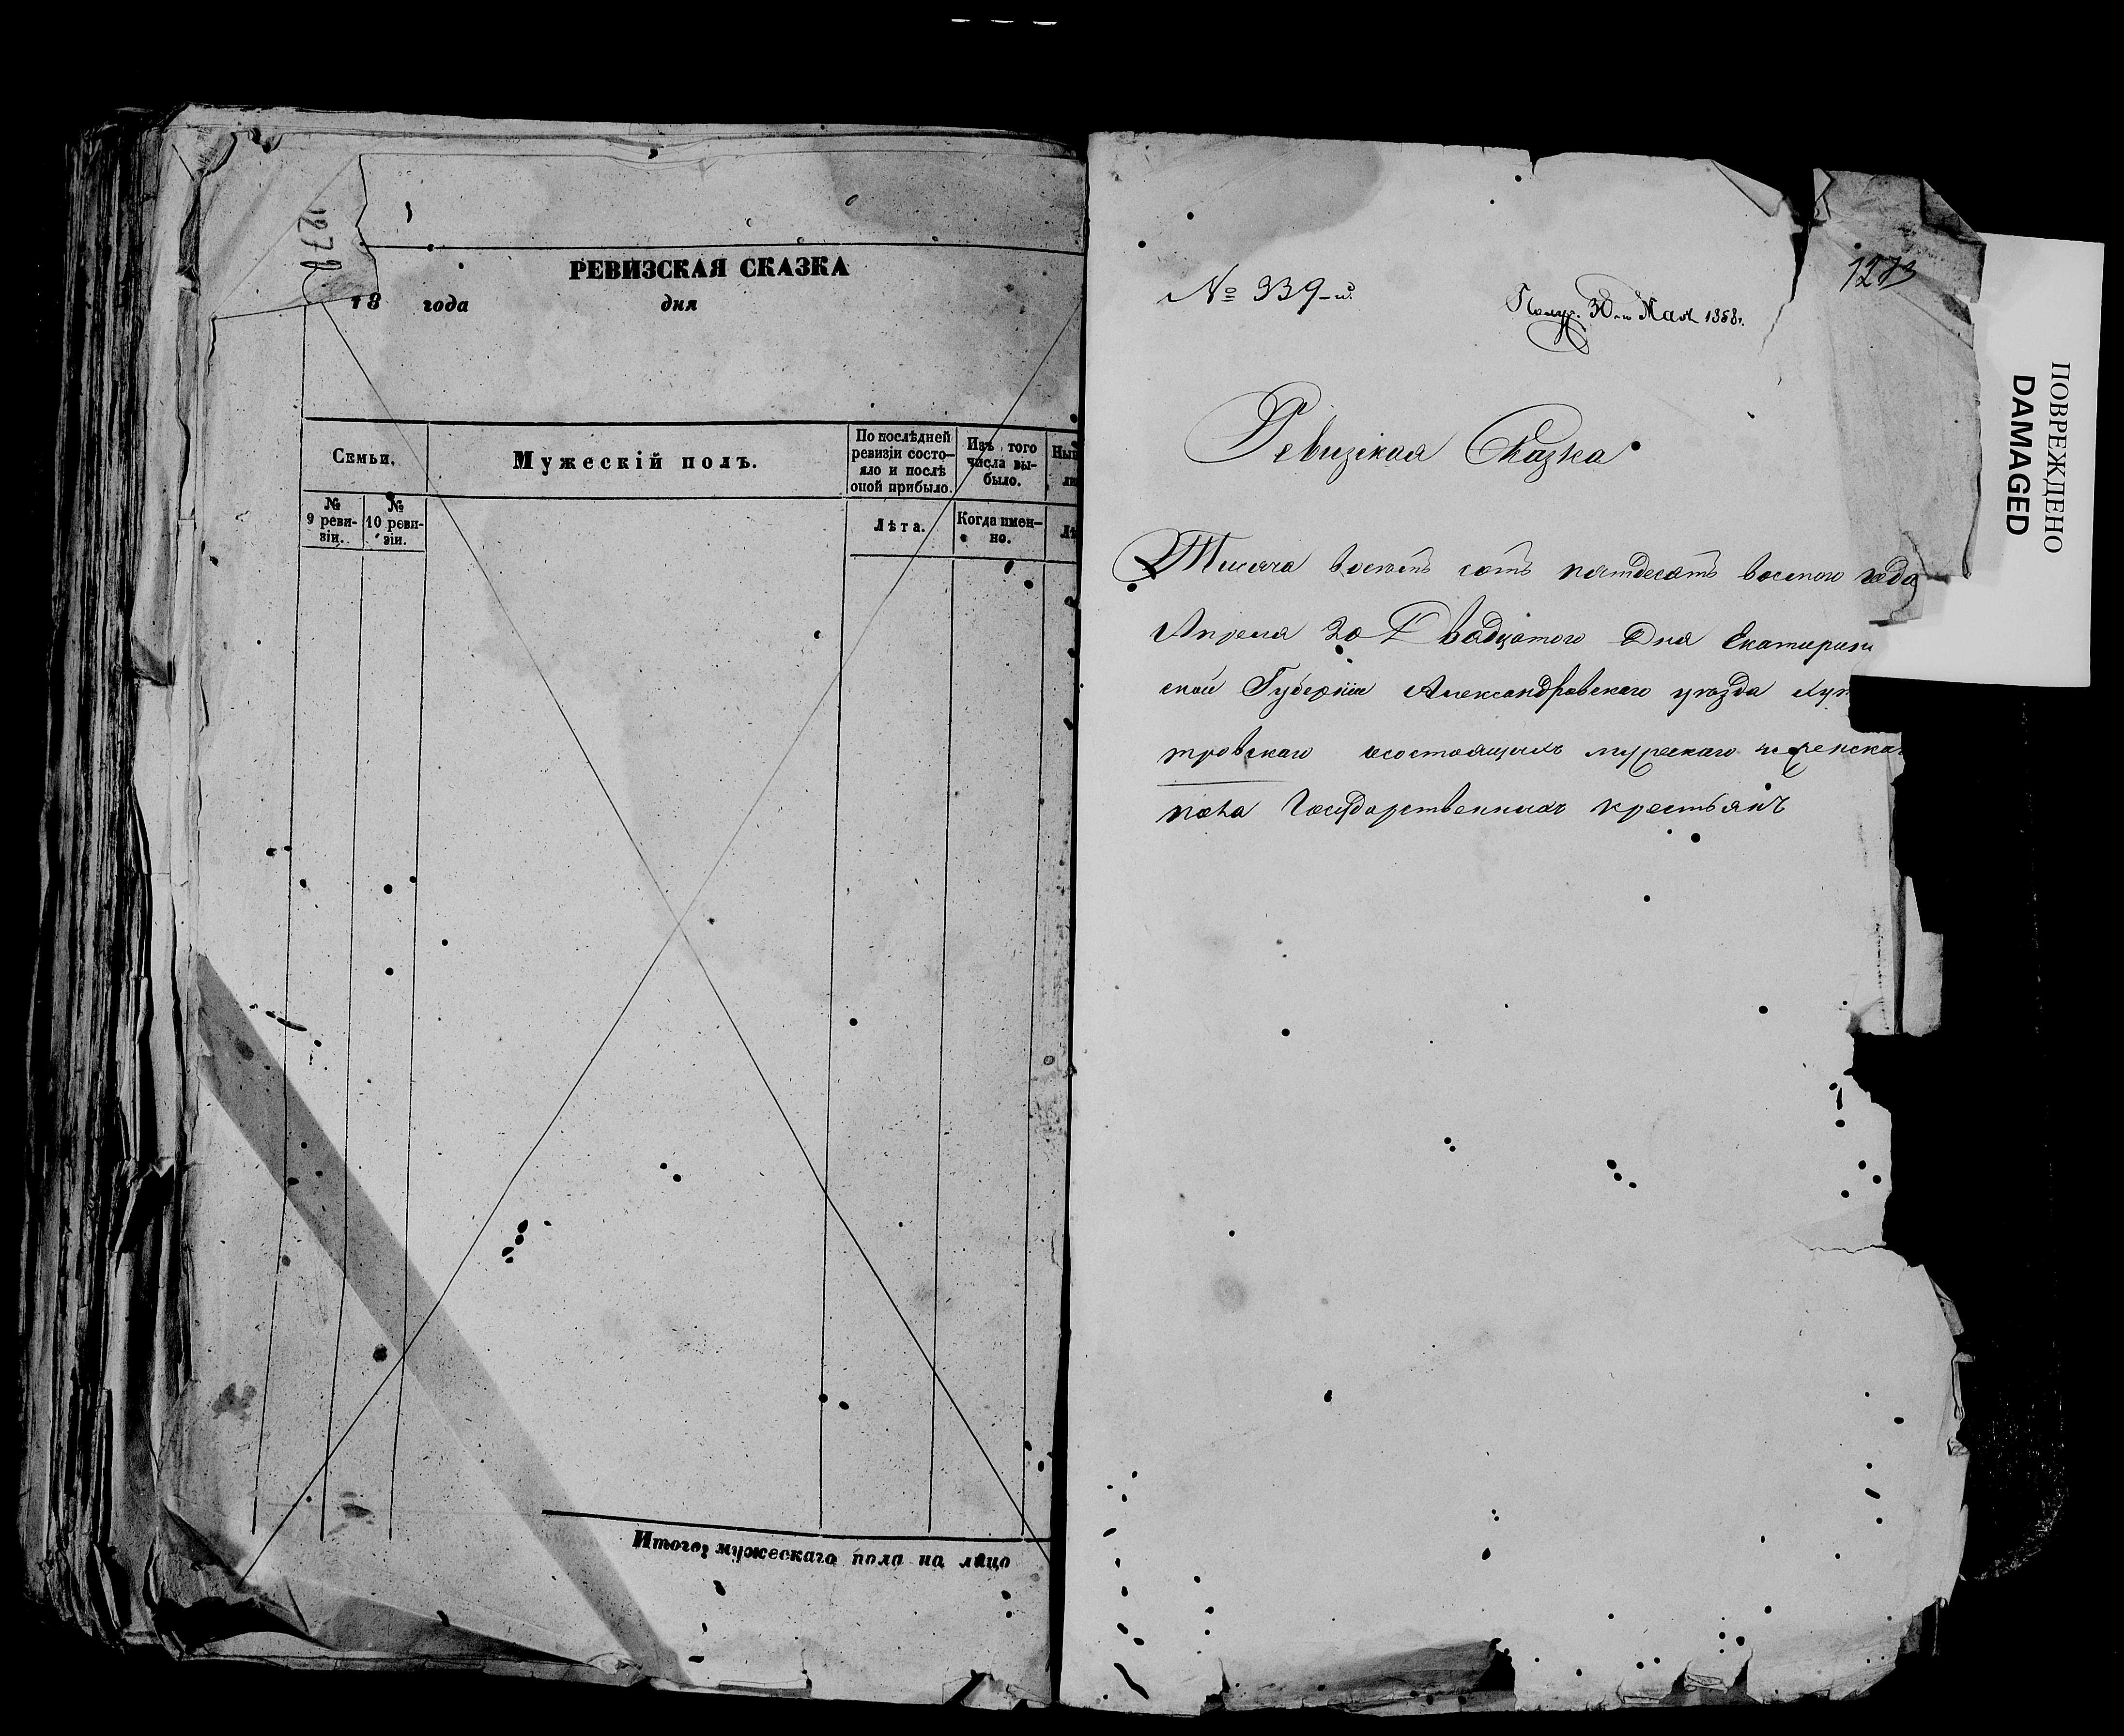 1272
РЕВИЗСКАЯ СКАЗКА
18 года дня
Семьи.
Мужескій полъ.
По послѣдней ревизіи состо-
яло и послѣ
оной прибыло.
Изъ того
числа вы-
было.
№
9 реви-
зіи.
№
10 реви-
зіи.
Лѣта.
Когда имен-
но.
Итого мужескаго пола на лицо
№ 339-й.
Получ. 30-го Мая 1858 г.
1273
Ревизская Сказка
Тисяча восемь сотъ пятдесятъ восмого года
Апреля 20 Двадцятого Дня Екатерин
ской Губерніи Александровскаго уезда Хут
тровскаго состоящихъ мужескаго и женскаг
пола Государственныхъ крестьянъ
ПОВРЕЖДЕНО
DAMAGED